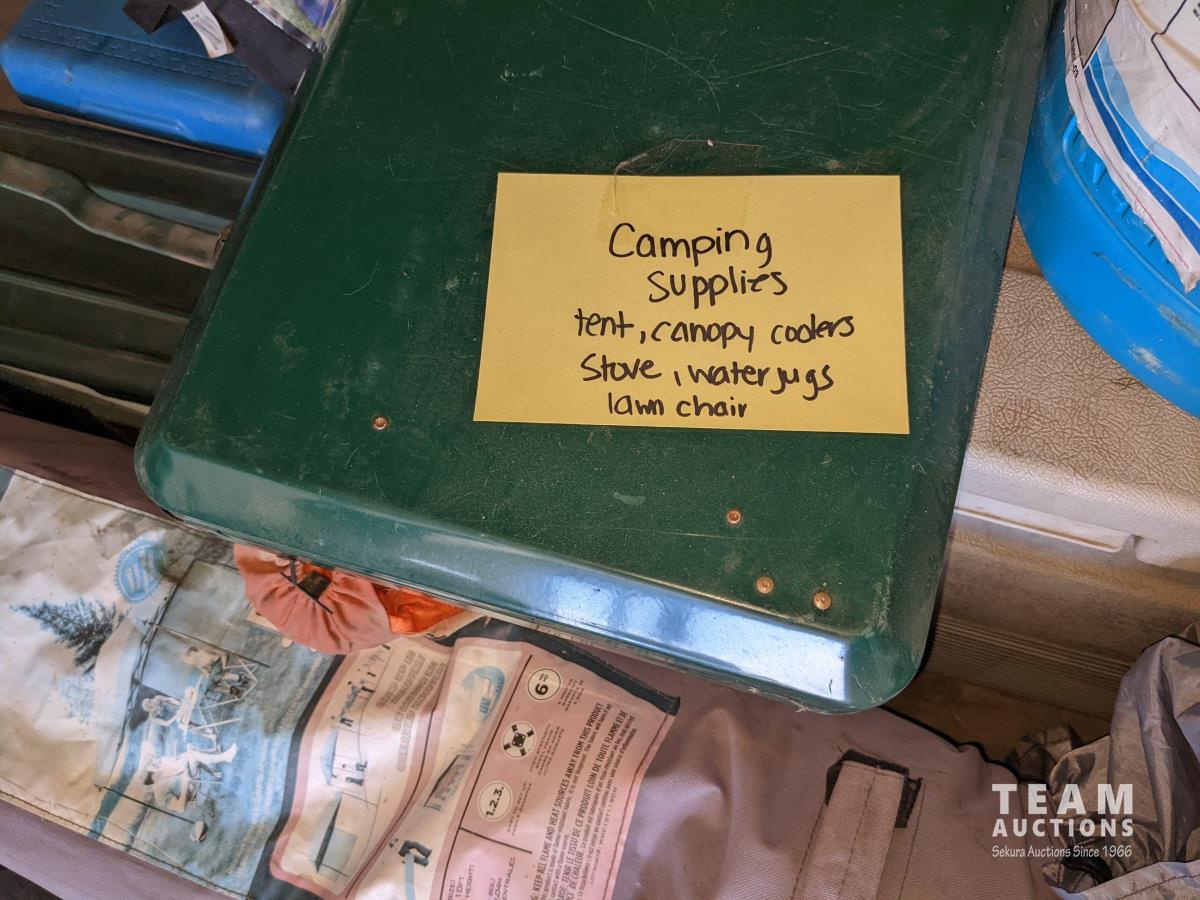 Camping
supplies
tent, canopy coolers
Stove, water jugs
lawn chair
6
1.2.3.
KEEP ALL FLAME AND HEAT SOURCES AWAY FROM THIS PRODUCT
TENIR LE TISSU DE CE PRODUIT LOIN DE TOUTE FLAMME ET DE
TEAM
AUCTIONS
Sekura Auctions Since 1966